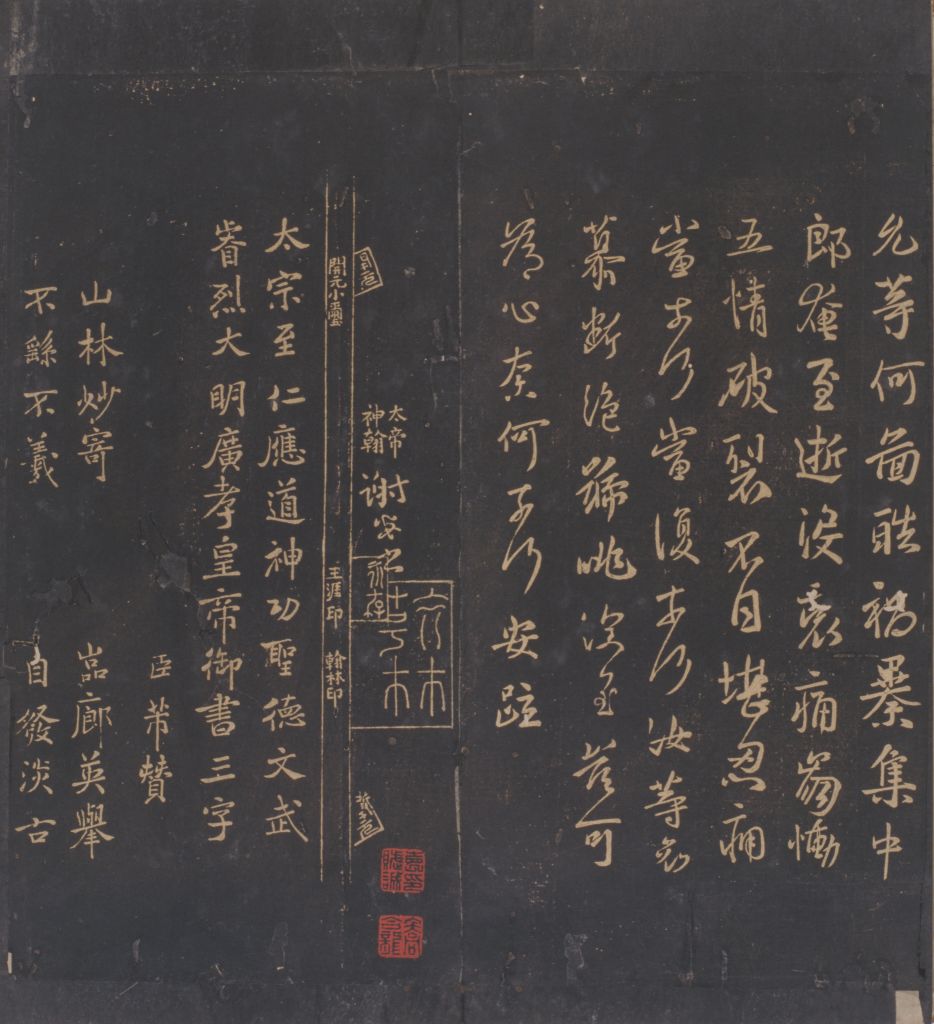 允等何圖酷禍暴集中
郎奄至逝没哀痛崩慟
五情破裂不自堪忍痛
當奈何當復奈何汝等哀
慕斷絶號咷深至豈可
為心奈何奈何安疏
太帝
神翰
謝安書
永存
開元小璽
王涯印
翰林印
太宗至仁應道神功聖德文武
睿烈大明廣孝皇帝御書三字
臣芾贊
山林妙寄 嵓廊英舉
不繇不羲 自發淡古